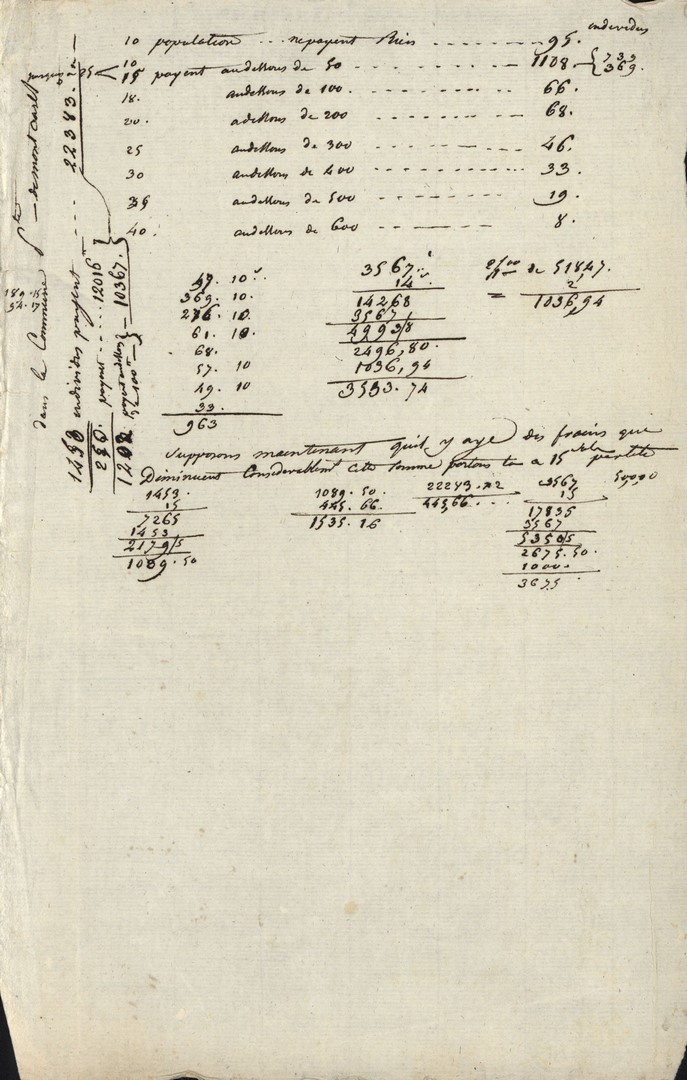 individus
10 population ... ne payent Rien - - - - - - - 95.
10
15 payent audessous de 50 - - - - - - - 1108. { 739 369.
25
18. audessous de 100. - - - - - - - 66.
20. adessous de 200 - - - - - - - 68.
25 audessous de 300 - - - - - - - 46.
30 audessous de 400 - - - - - - - 33.
35 audessous de 500 - - - - - - - 19.
40. audessous de 600 - - - - - - - 8.
dans la Commune
22383.
1453 individus payent
250. payent .... 12016
1202 payent audessous de 100 10367.
189 - 15
54. 17
47. 10
369. 10.
276. 10.
61. 10.
68.
57. 10
49. 10
33.
963
3567.
14.
14268
3567
4993/8
2496,80.
1036,94
3533.74
de 51847.
2,
= 1036,94
Supposons maintenant quil y aye des frais que
Diminuent Considerablemt cette somme portons la a 15
1453.
15
7265
1453
2179/5
1089. 50
1089. 50.
445. 66.
1535. 16
22283. 2
445,66. ...
3567
15
17835
3567
5350/5
2675. 50.
1000.
3675